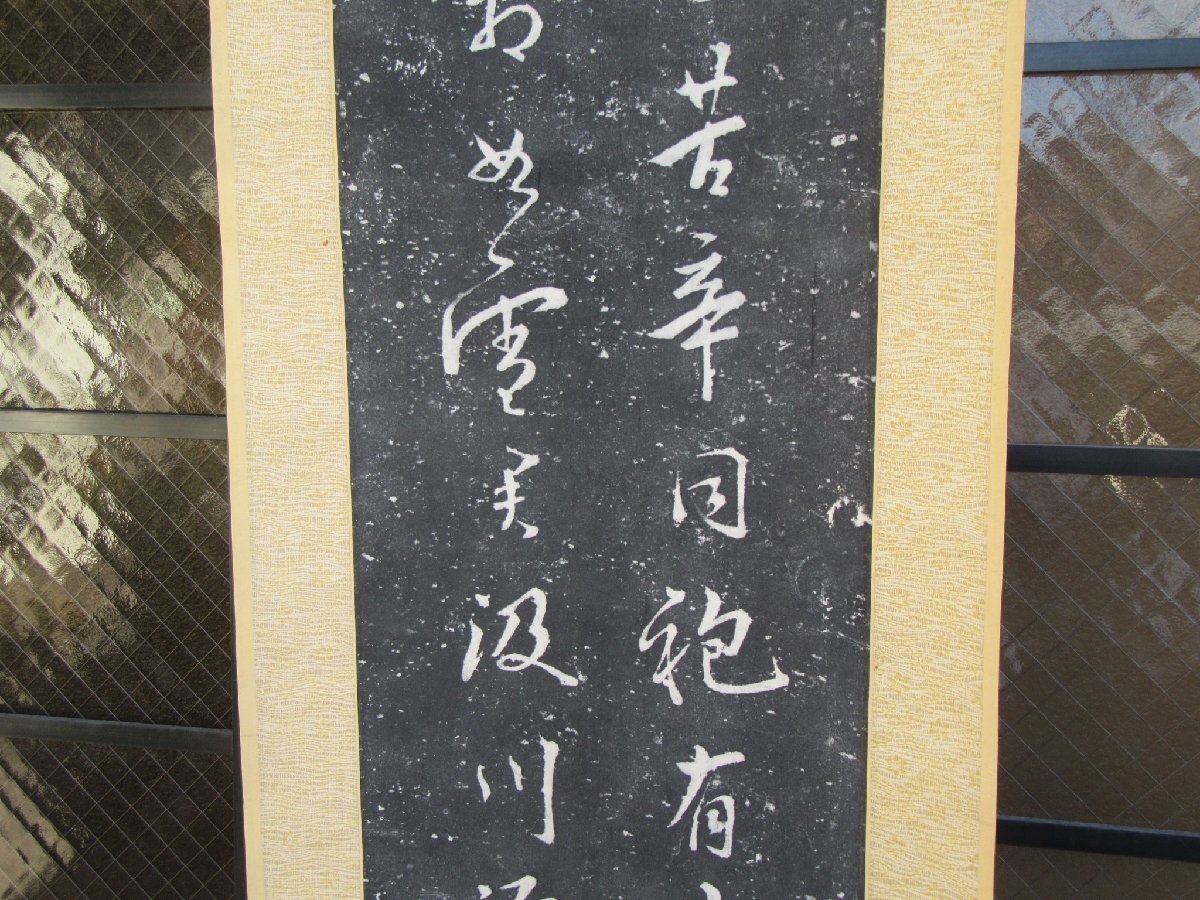 苦辛同袍有
如雪君汲川